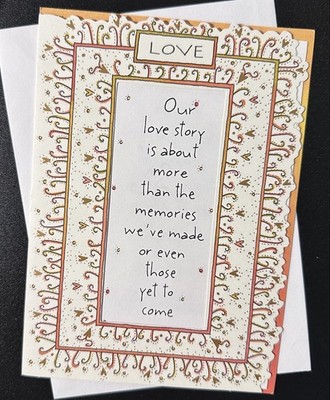 LOVE
Our
love story
is about
more
than the
memories
we've made
or even
those
yet to
come